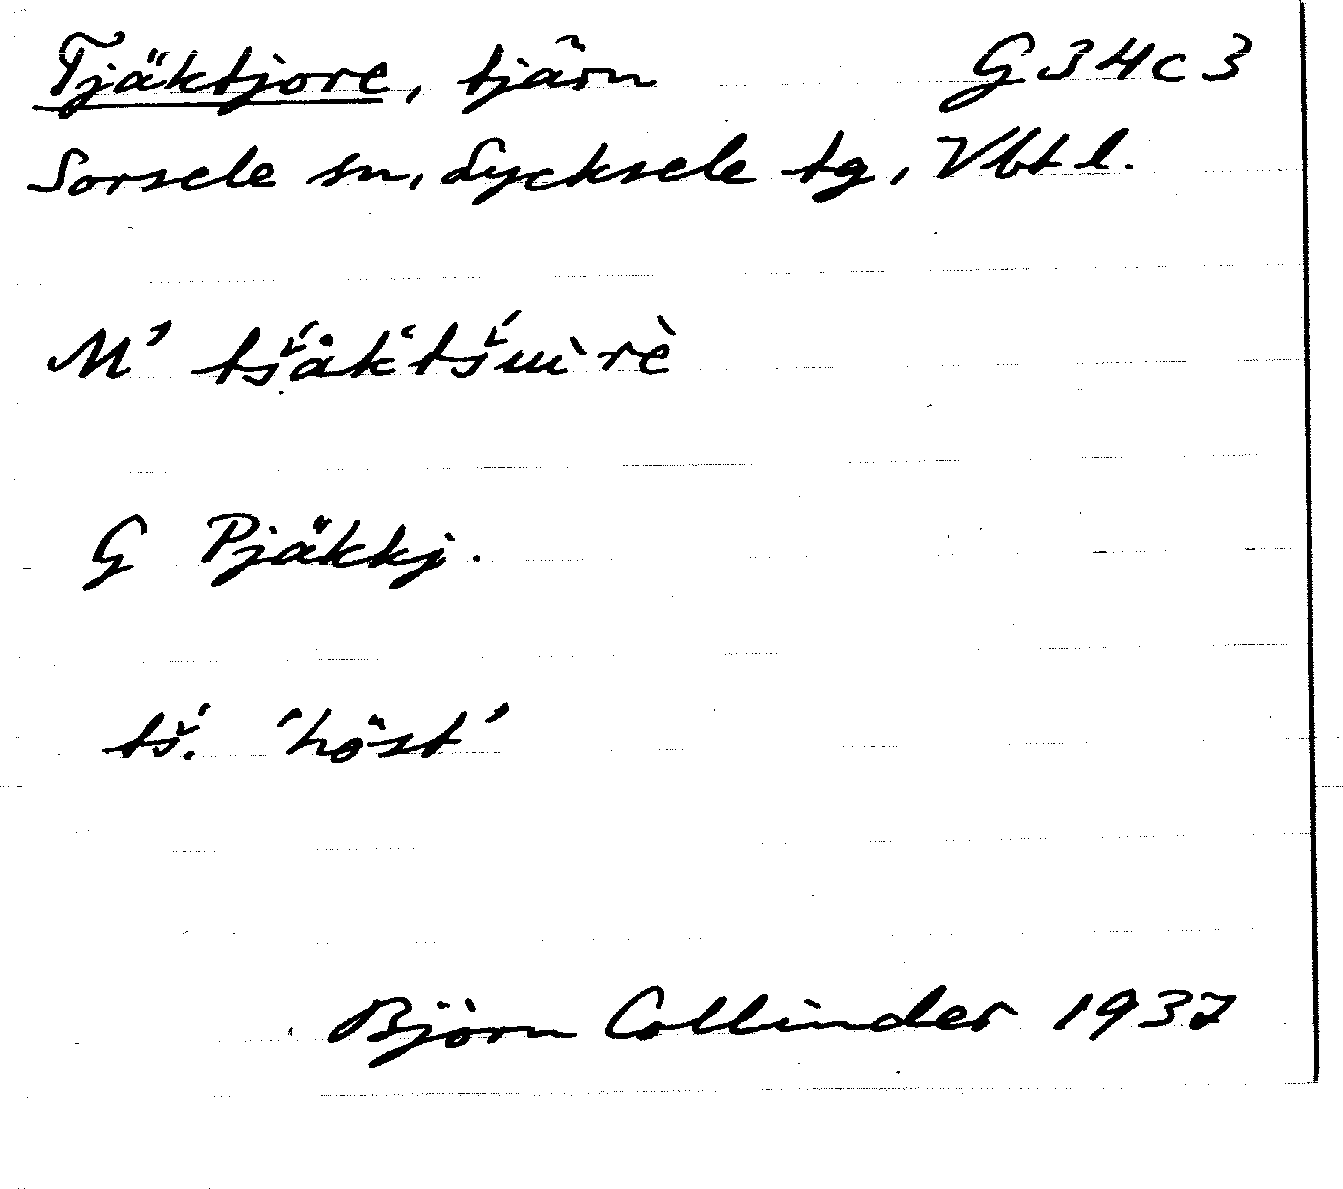 Tjäktjore, tjärn G34c3
Sorsele sn, Lycksele tg, Vbt l.
G Pjäkkj.
tś̌. 'höst'
Björn Collinder 1937